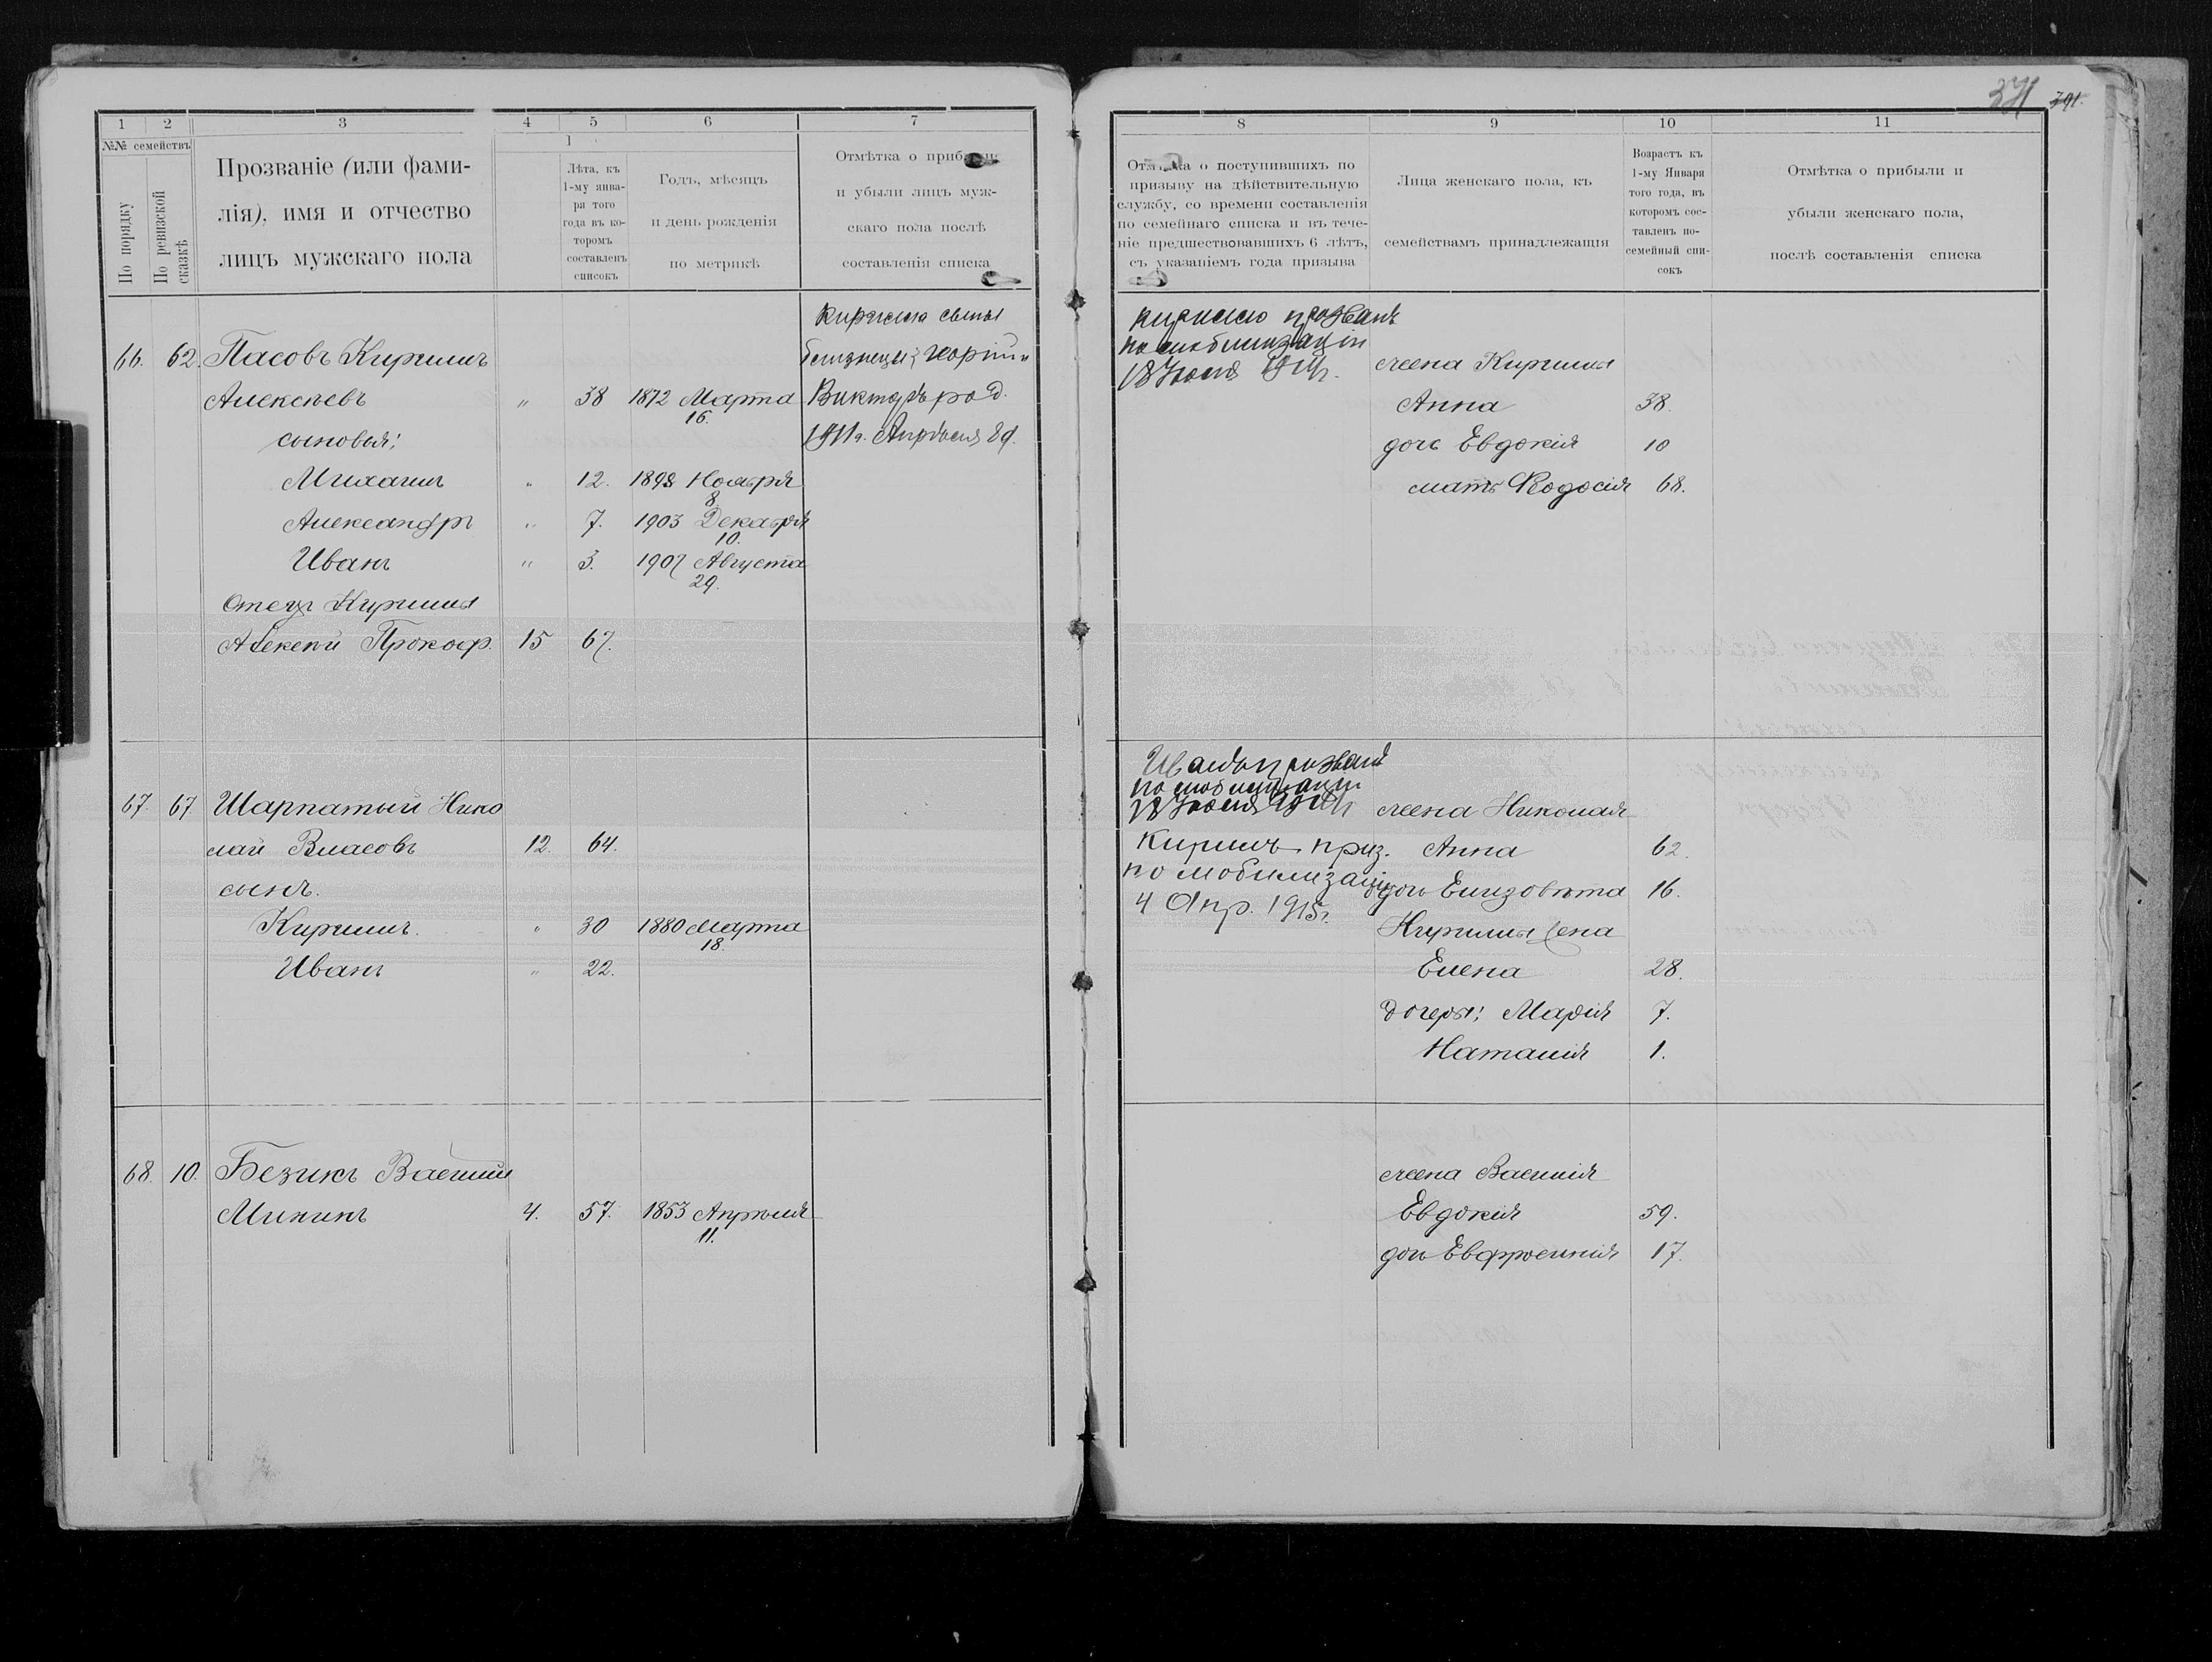 371 391.
1 2 3 4 5 6 7
№№ семействъ
По порядку
По ревизской сказкѣ
Прозваніе (или фами-
лія), имя и отчество
лицъ мужскаго пола
Лѣта, къ
1-му янва-
ря того
года въ ко-
торомъ
составленъ
списокъ
Годъ, мѣсяцъ
и день рожденія
по метрикѣ
Отмѣтка о прибыли
и убыли лицъ муж-
скаго пола послѣ
составленія списка
Кирилла сыны
66. 62. Пасовъ Кириллъ близнецы; Георгій и
Алексѣевъ " 38 1872 Марта Викторъ род.
16.
сыновья; 1911 г. Апрѣля 8 д.
Михаилъ " 12. 1898 Ноября
8
Александръ " 7. 1903 Декабря
10.
Иванъ " 3. 1907 Августа
29.
Отецъ Кирилла
Алексѣй Прокоф. 15 67.
67. 67 Шарпатый Нико
лай Власовъ 12. 64.
сынъ.
Кириллъ. " 30 1880 Марта
18.
Иванъ " 22.
68. 10. Безикъ Василій
Мининъ 4. 57. 1853 Апрѣля
11.
8 9 10 11
Отмѣтка о поступившихъ по
призыву на дѣйствительную
службу, со времени составленія
по семейнаго списка и въ тече-
ніе предшествовавшихъ 6 лѣтъ,
съ указаніемъ года призыва
Лица женскаго пола, къ
семействамъ принадлежащія
Возрастъ къ
1-му Января
того года, въ
которомъ сос-
тавленъ по-
семейный спи-
сокъ
Отмѣтка о прибыли и
убыли женскаго пола,
послѣ составленія списка
призванъ
по мобилизаціи
18 Іюля 1914 г.
жена Кирилла
Анна 38.
дочь Евдокія 10
мать Ѳеодосія 68.
Иванъ призванъ
по мобилизаціи
18 Іюля 1914 г
Кириллъ приз.
по мобилизаціи
4 Апр. 1915 г.
жена Николая
Анна 62.
дочь Елизовѣта 16.
Кирилла жена
Елена 28.
дочеры; Марія 7.
Наталія 1.
жена Василія
Евдокія 59.
дочь Евфросинія 17.